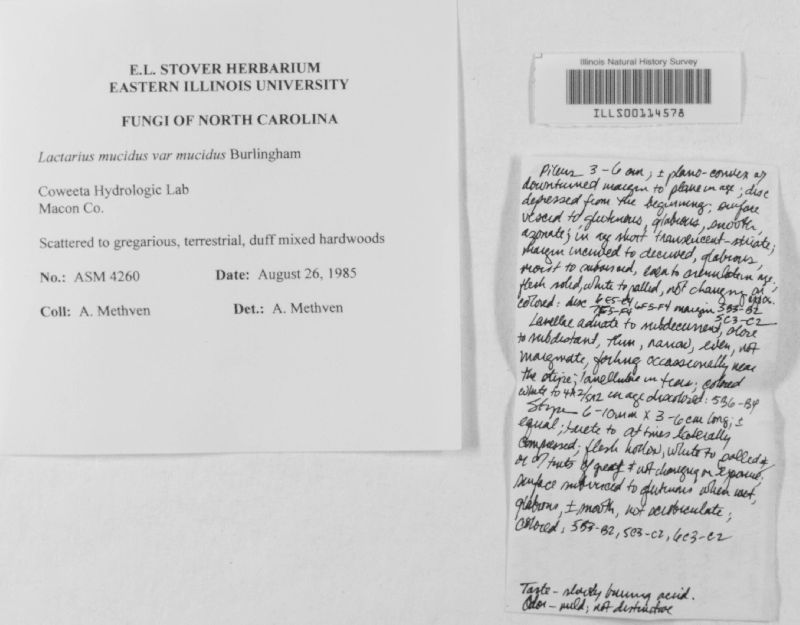 E.L. STOVER HERBARIUM
EASTERN ILLINOIS UNIVERSITY
FUNGI OF NORTH CAROLINA
Lactarius mucidus var mucidus Burlingham
Coweeta Hydrologic Lab
Macon Co.
Scattered to gregarious, terrestrial, duff mixed hardwoods
No.: ASM 4260 Date: August 26, 1985
Coll: A. Methven Det.: A. Methven
Illinois Natural History Survey
ILLS00114578
Pileus 3-6 cm, ± plano-convex w/
downturned margin to plane in age; disc
depressed from the beginning; surface
viscid to glutinous, glabrous, smooth,
azonate; in age short translucent-striate;
margin incurved to decurved, glabrous,
moist to subviscid, even to crenulate in age;
flesh solid, white to pallid, not changing on expos.
colored: disc 6E5-E4 6F5-F4 margin 5B3-B2
5C3-C2
Lamellae adnate to subdecurrent, close
to subdistant, thin, narrow, even, not
marginate, forking occassionally near
the stipe; lamellulae in tiers; colored
white to 4A2/5A2 in age discolored: 5B6-B4
Stipe 6-10mm x 3-6 cm long; ±
equal; terete to at times laterally
compressed; flesh hollow, white to pallid ±
or w/ tints of gray ± not changing on exposure;
surface subviscid to glutinous when wet,
glabrous, ± smooth, not scrobiculate;
colored, 5B3-B2, 5C3-C2, 6C3-C2
Taste - slowly burning acrid.
Odor - mild; not distinctive